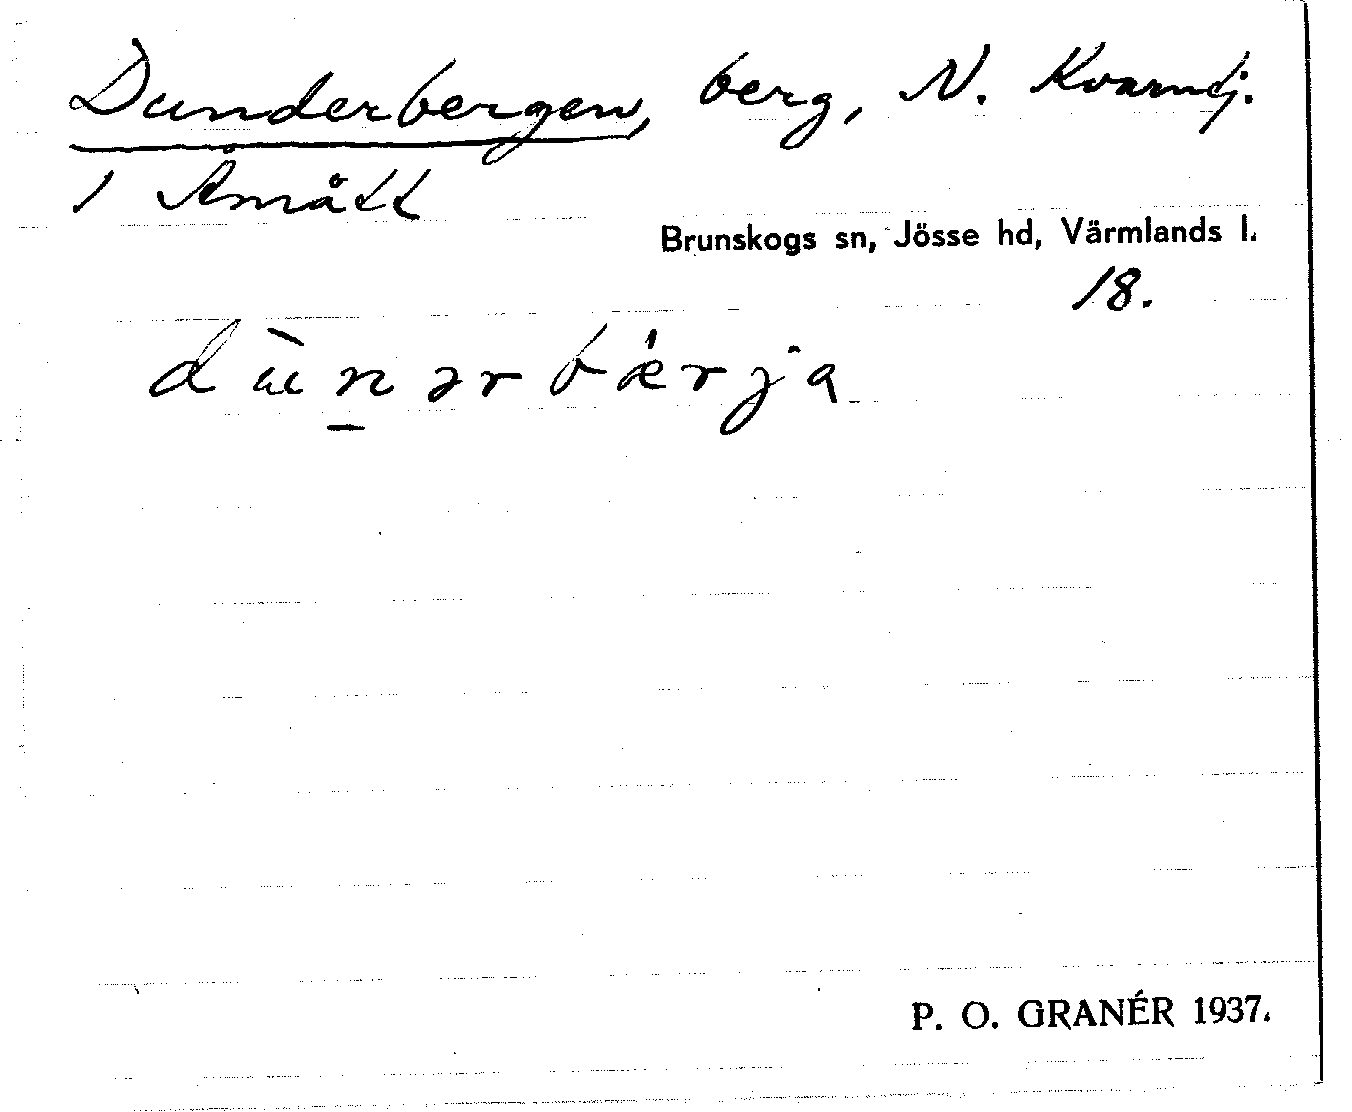 Dunderbergen, berg, N. Kvarntj.
1 Åmått
Brunskogs sn, Jösse hd, Värmlands l.
18.
dùnərbǽrja
P. O. GRANÉR 1937.